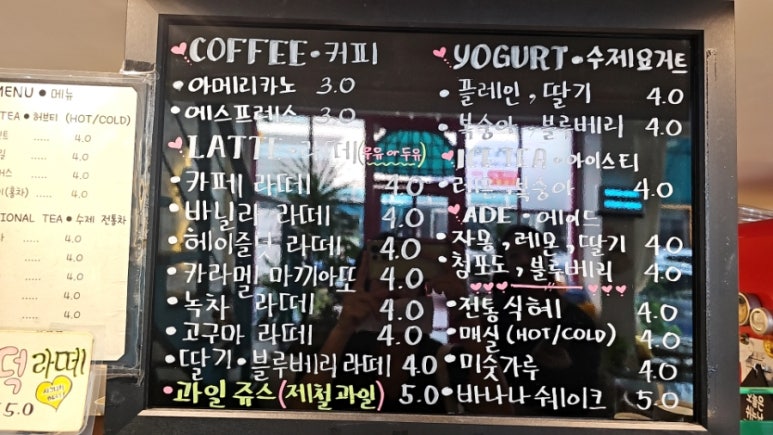 MENU • 메뉴
TEA • 허브티 (HOT/COLD)
..... 4.0
..... 4.0
..... 4.0
(홍차) ..... 4.0
IONAL TEA • 수제 전통차
..... 4.0
..... 4.0
..... 4.0
..... 4.0
떡 라떼
5.0
COFFEE • 커피
• 아메리카노 3.0
• 에스프레스 3.0
LATTE • 라떼 (우유 or 두유)
• 카페 라떼 4.0
• 바닐라 라떼 4.0
• 헤이즐넛 라떼 4.0
• 카라멜 마끼아또 4.0
• 녹차 라떼 4.0
• 고구마 라떼 4.0
• 딸기 • 블루베리 라떼 4.0
• 과일 쥬스 (제철과일) 5.0
YOGURT • 수제요거트
• 플레인, 딸기 4.0
• 복숭아, 블루베리 4.0
ICE TEA • 아이스티
• 레몬, 복숭아 4.0
ADE • 에이드
• 자몽, 레몬, 딸기 4.0
• 청포도, 블루베리 4.0
• 전통식혜 4.0
• 매실 (HOT/COLD) 4.0
• 미숫가루 4.0
• 바나나 쉐이크 5.0